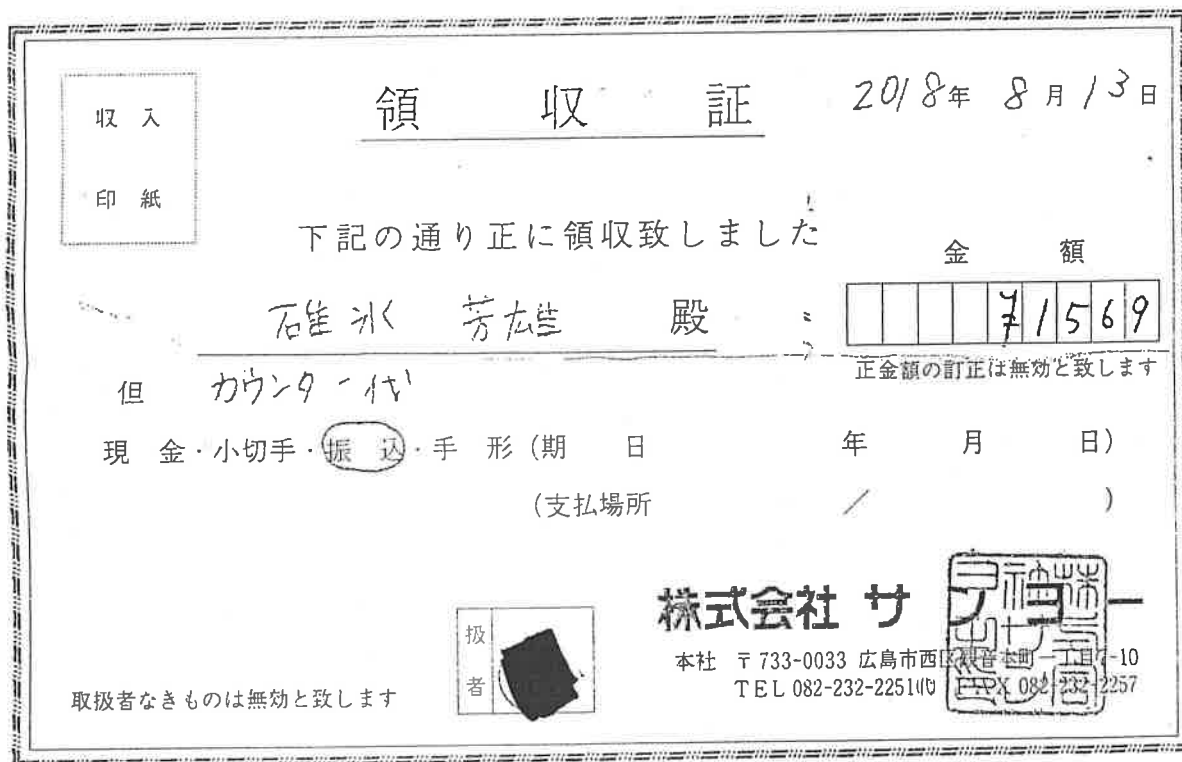 収入
印紙
領収証
2018年 8月13日
下記の通り正に領収致しました
金額
碓氷 芳雄 殿
71569
正金額の訂正は無効と致します
但 カウンター代
現金・小切手・振込・手形(期日 年 月 日)
(支払場所 / )
株式会社サンヨー
扱者
本社 〒733-0033 広島市西区観音本町一丁目 -10
TEL 082-232-2251㈹ FAX 082-232-2257
取扱者なきものは無効と致します